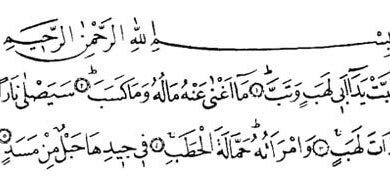 بِسْمِ اللهِ الرَّحْمٰنِ الرَّحِيمِ
بَّتْ يَدَٓا اَبٖي لَهَبٍ وَتَبَّۜ ﴿١﴾ مَٓا اَغْنٰى عَنْهُ مَالُهُ وَمَا كَسَبَۜ ﴿٢﴾ سَيَصْلٰى نَارًا
اتَ لَهَبٍۚ ﴿٣﴾ وَامْرَاَتُهُۜ حَمَّالَةَ الْحَطَبِۚ ﴿٤﴾ فٖي جٖيدِهَا حَبْلٌ مِنْ مَسَدٍ ﴿٥﴾